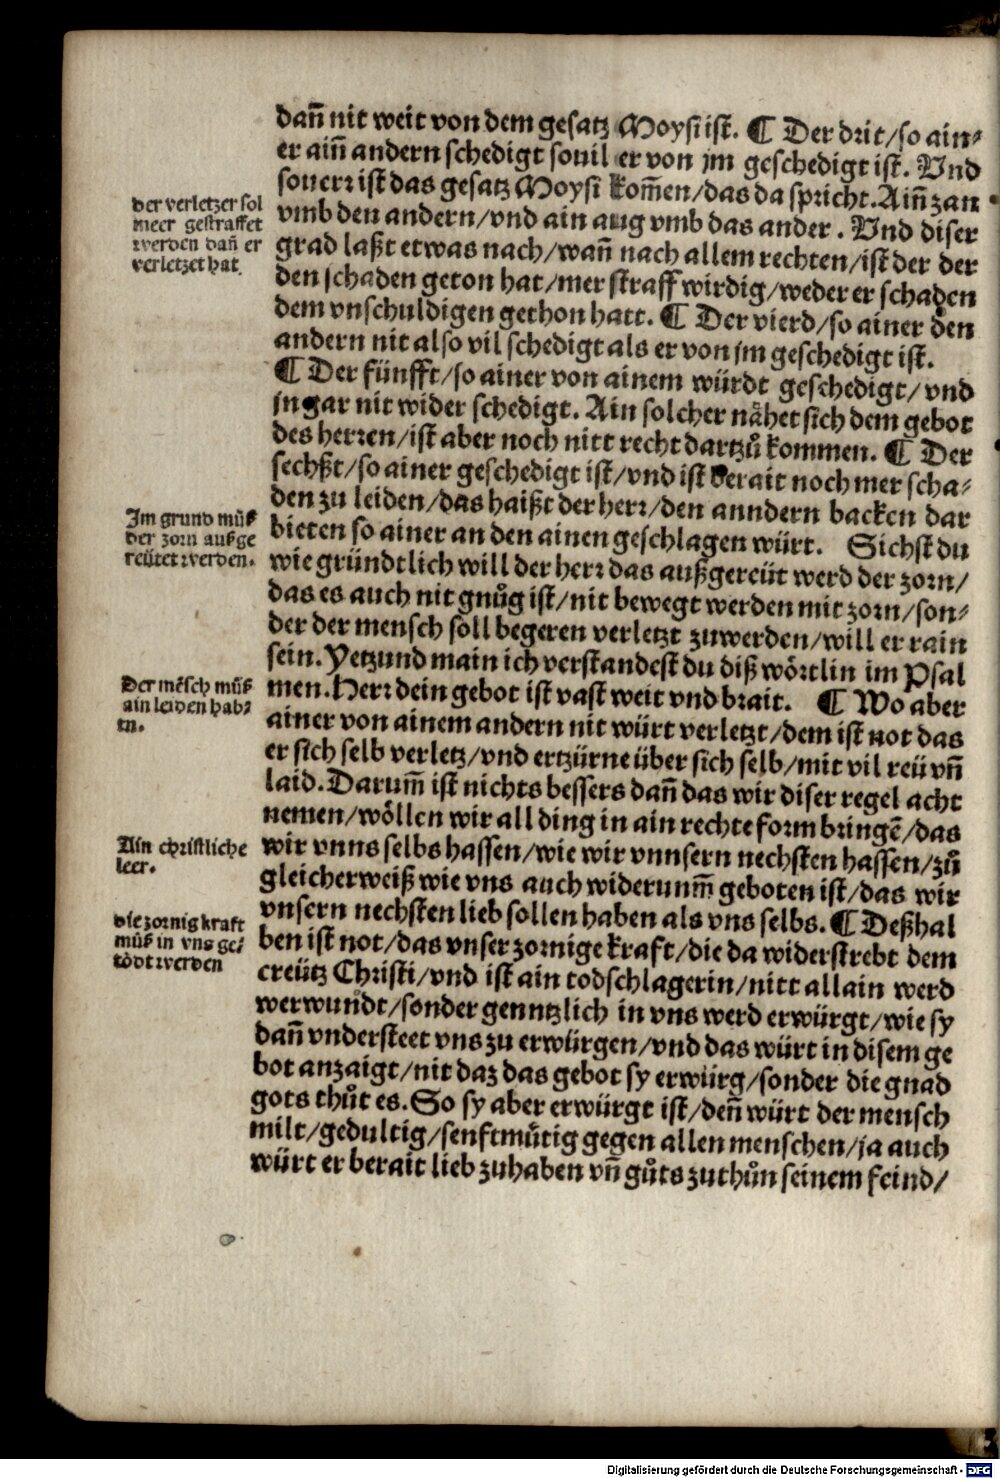 dañ nit weit von dem gesatz Moysi ist. ¶ Der drit/so ain⸗
er aiñ andern schedigt souil er von jm geschedigt ist. Vnd
souerr ist das gesatz Moysi kom̃en/das da spricht. Aiñ zan
vmb den andern/vnd ain aug vmb das ander. Vnd diser
grad laßt etwas nach/wañ nach allem rechten/ist der der
den schaden geton hat/mer straff wirdig/weder er schaden
dem vnschuldigen gethon hatt. ¶ Der vierd/so ainer den
andern nit also vil schedigt als er von jm geschedigt ist.
¶ Der fünfft/so ainer von ainem würdt geschedigt/vnd
jn gar nit wider schedigt. Ain solcher nähet sich dem gebot
des herren/ist aber noch nitt recht dartzů kommen. ¶ Der
sechßt/so ainer geschedigt ist/vnd ist berait noch mer scha⸗
den zu leiden/das haißt der herr/den anndern backen dar
bieten so ainer an den ainen geschlagen würt. Sichst du
wie gründtlich will der herr das außgereüt werd der zorn/
das es auch nit gnůg ist/nit bewegt werden mit zorn/son⸗
der der mensch soll begeren verletzt zuwerden/will er rain
sein. Yetzund main ich verstandest du diß wörtlin im Psal
men. Herr dein gebot ist vast weit vnd brait. ¶ Wo aber
ainer von ainem andern nit würt verletzt/dem ist not das
er sich selb verletz/vnd ertzürne über sich selb/mit vil reü vñ
laid. Darum̃ ist nichts bessers dañ das wir diser regel acht
nemen/wöllen wir all ding in ain rechte form bringẽ/das
wir vnns selbs hassen/wie wir vnnsern nechsten hassen/zů
gleicherweiß wie vns auch widerunm̃ geboten ist/das wir
vnsern nechsten lieb sollen haben als vns selbs. ¶ Deßhal
ben ist not/das vnser zornige kraft/die da widerstrebt dem
creütz Christi/vnd ist ain todschlagerin/nitt allain werd
werwundt/sonder genntzlich in vns werd erwürgt/wie sy
dañ vndersteet vns zu erwürgen/vnd das würt in disem ge
bot anzaigt/nit daz das gebot sy erwürg/sonder die gnad
gots thůt es. So sy aber erwürgt ist/deñ würt der mensch
milt/gedultig/senftmůtig gegen allen menschen/ja auch
würt er berait lieb zuhaben vñ gůts zuthůn seinem feind/
der verletzer sol
meer gestraffet
werden dañ er
verletzet hat.
Im grund můß
der zorn außge
reütet werden.
Der mẽsch můß
ain leiden hab⸗
en.
Ain christliche
leer.
die zornig kraft
můß in vns ge⸗
tödt werden
Digitalisierung gefördert durch die Deutsche Forschungsgemeinschaft - DFG